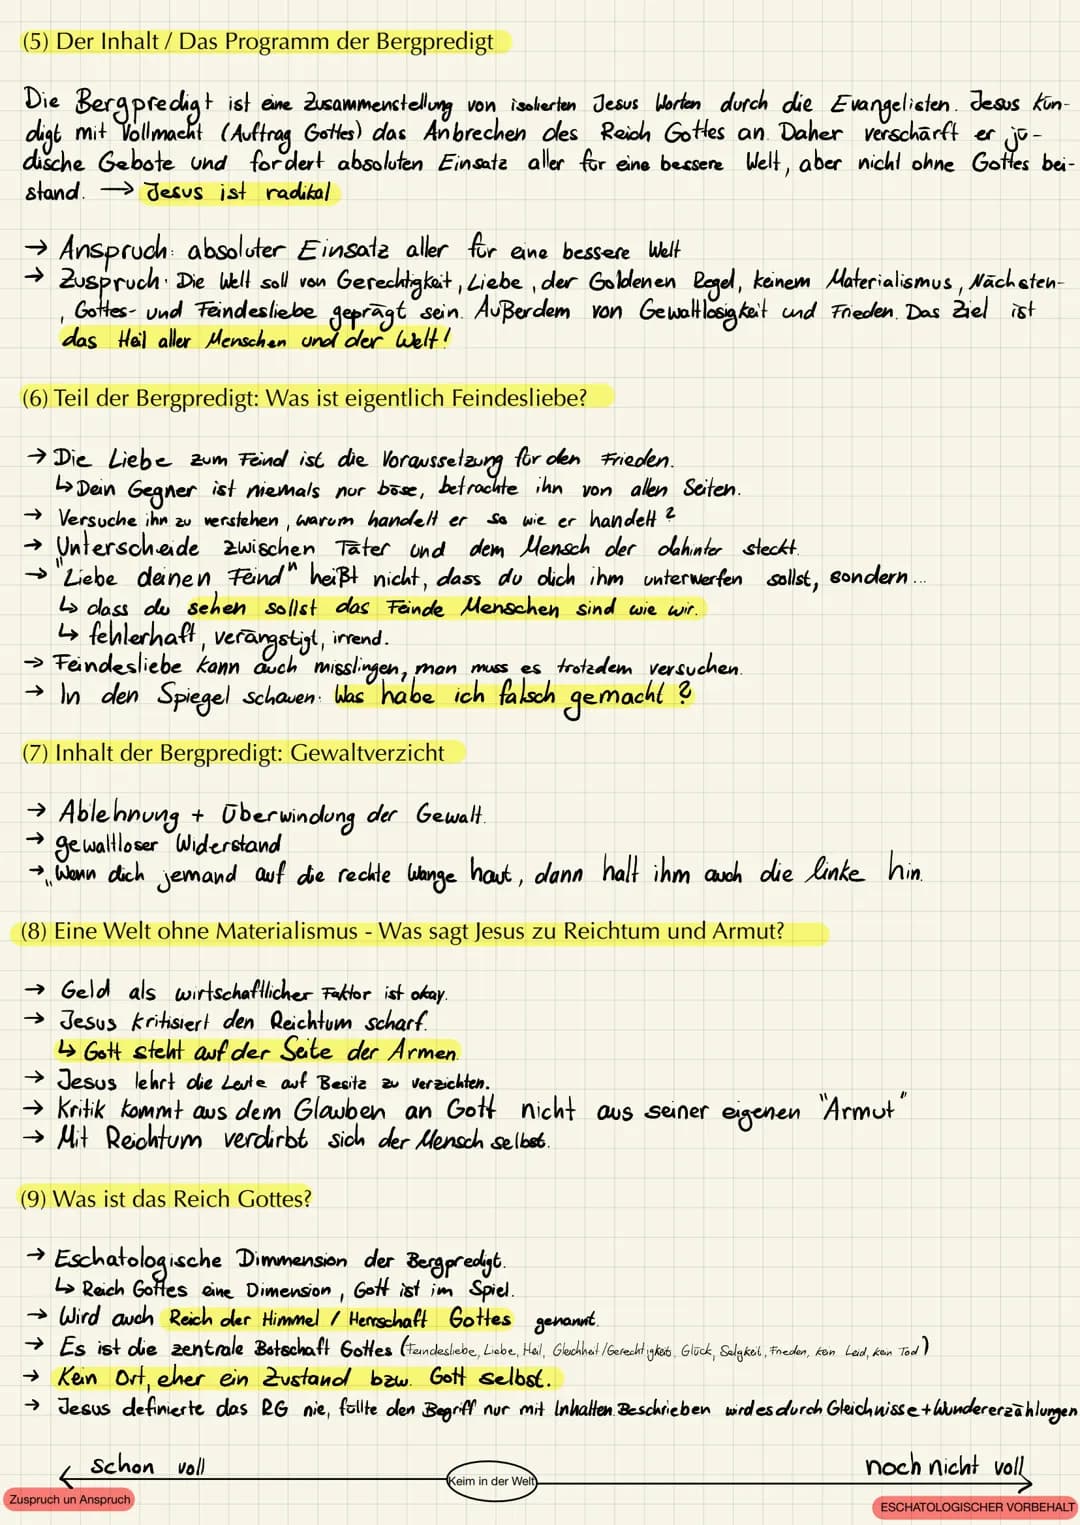 (5) Der Inhalt / Das Programm der Bergpredigt
Die Bergpredigt ist eine Zusammenstellung von isolierten Jesus Worten durch die Evangelisten. Jesus kün-
digt mit Vollmacht (Auftrag Gottes) das Anbrechen des Reich Gottes an. Daher verschärft er jü-
dische Gebote und fordert absoluten Einsatz aller für eine bessere Welt, aber nicht ohne Gottes bei-
stand. → Jesus ist radikal
→ Anspruch: absoluter Einsatz aller für eine bessere Welt
→ Zuspruch: Die Welt soll von Gerechtigkeit, Liebe, der Goldenen Regel, keinem Materialismus, Nächsten-
, Gottes- und Feindesliebe geprägt sein. Außerdem von Gewaltlosigkeit und Frieden. Das Ziel ist
das Heil aller Menschen und der Welt!
(6) Teil der Bergpredigt: Was ist eigentlich Feindesliebe?
→ Die Liebe zum Feind ist die Voraussetzung für den Frieden.
↳ Dein Gegner ist niemals nur böse, betrachte ihn von allen Seiten.
→ Versuche ihn zu verstehen, warum handelt er so wie er handelt?
→ Unterscheide zwischen Täter und dem Mensch der dahinter steckt.
→ "Liebe deinen Feind" heißt nicht, dass du dich ihm unterwerfen sollst, sondern...
↳ dass du sehen sollst das Feinde Menschen sind wie wir.
↳ fehlerhaft, verängstigt, irrend.
→ Feindesliebe kann auch misslingen, man muss es trotzdem versuchen.
→ In den Spiegel schauen: Was habe ich falsch gemacht?
(7) Inhalt der Bergpredigt: Gewaltverzicht
→ Ablehnung + Überwindung der Gewalt.
→ gewaltloser Widerstand
→ „Wenn dich jemand auf die rechte Wange haut, dann halt ihm auch die linke hin.
(8) Eine Welt ohne Materialismus - Was sagt Jesus zu Reichtum und Armut?
→ Geld als wirtschaftlicher Faktor ist okay.
→ Jesus kritisiert den Reichtum scharf.
↳ Gott steht auf der Seite der Armen.
→ Jesus lehrt die Leute auf Besitz zu verzichten.
→ Kritik kommt aus dem Glauben an Gott nicht aus seiner eigenen "Armut"
→ Mit Reichtum verdirbt sich der Mensch selbst.
(9) Was ist das Reich Gottes?
→ Eschatologische Dimmension der Bergpredigt.
↳ Reich Gottes eine Dimension, Gott ist im Spiel.
→ Wird auch Reich der Himmel / Herrschaft Gottes genannt.
→ Es ist die zentrale Botschaft Gottes (Feindesliebe, Liebe, Heil, Gleichheit/Gerechtigkeit, Glück, Seligkeit, Frieden, kein Leid, kein Tod)
→ Kein Ort, eher ein Zustand bzw. Gott selbst.
→ Jesus definierte das RG nie, füllte den Begriff nur mit Inhalten. Beschrieben wird es durch Gleichnisse + Wundererzählungen
schon voll
noch nicht voll
Keim in der Welt
Zuspruch un Anspruch
ESCHATOLOGISCHER VORBEHALT